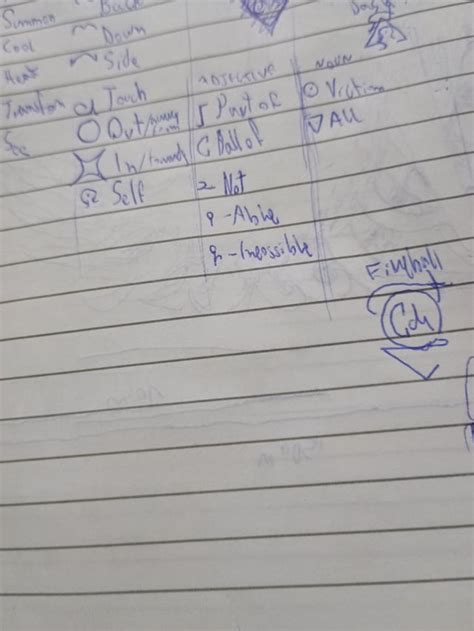 Summon Back
Cool Down
Heat Side
Transform Touch
See Out/away from
In/towards
Self
Adjective
Part of
Ball of
Not
-Able
-Impossible
Noun
Victim
All
Fireball